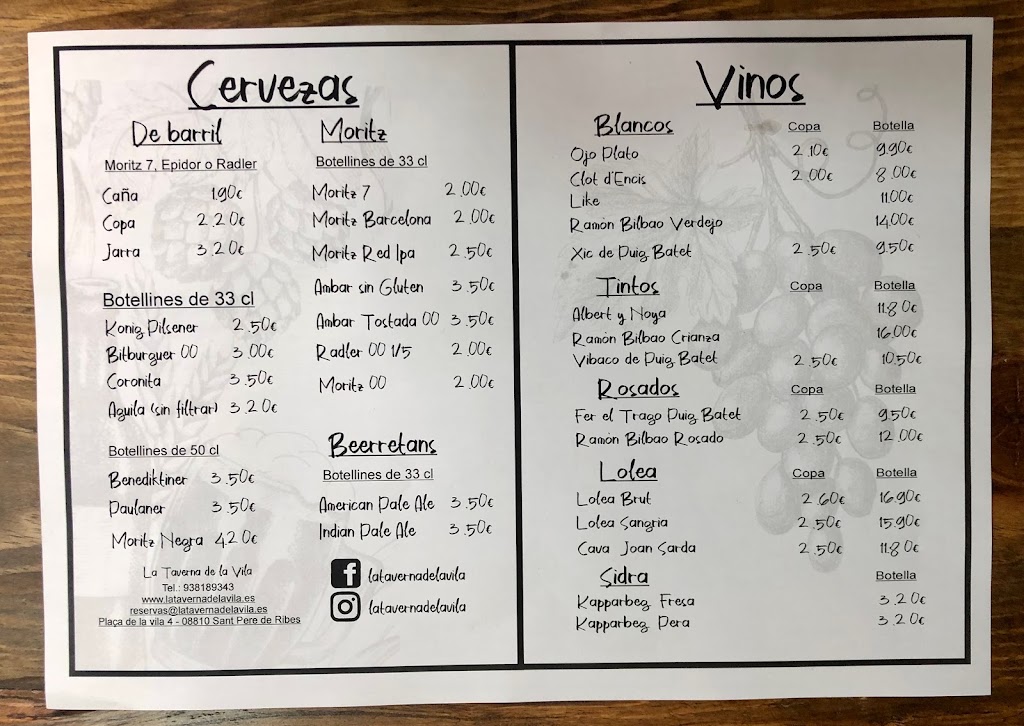 Cervezas
De barril
Moritz 7, Epidor o Radler
Caña 1.90€
Copa 2.20€
Jarra 3.20€
Botellines de 33 cl
Konig Pilsener 2.50€
Bitburguer 00 3.00€
Coronita 3.50€
Aguila (sin filtrar) 3.20€
Botellines de 50 cl
Benediktiner 3.50€
Paulaner 3.50€
Moritz Negra 4.20€
La Taverna de la Vila
Tel.: 938189343
www.latavernadelavila.es
reservas@latavernadelavila.es
Plaça de la vila 4 - 08810 Sant Pere de Ribes
Moritz
Botellines de 33 cl
Moritz 7 2.00€
Moritz Barcelona 2.00€
Moritz Red Ipa 2.50€
Ambar sin Gluten 3.50€
Ambar Tostada 00 3.50€
Radler 00 1/5 2.00€
Moritz 00 2.00€
Beerretans
Botellines de 33 cl
American Pale Ale 3.50€
Indian Pale Ale 3.50€
latavernadelavila
latavernadelavila
Vinos
Blancos Copa Botella
Ojo Plato 2.10€ 9.90€
Clot d'Encis 2.00€ 8.00€
Like 11.00€
Ramón Bilbao Verdejo 14.00€
Xic de Puig Batet 2.50€ 9.50€
Tintos Copa Botella
Albert y Noya 11.80€
Ramón Bilbao Crianza 16.00€
Vibaco de Puig Batet 2.50€ 10.50€
Rosados Copa Botella
Fer el Trago Puig Batet 2.50€ 9.50€
Ramón Bilbao Rosado 2.50€ 12.00€
Lolea Copa Botella
Lolea Brut 2.60€ 16.90€
Lolea Sangria 2.50€ 15.90€
Cava Joan Sarda 2.50€ 11.80€
Sidra Botella
Kapparbeg Fresa 3.20€
Kapparbeg Pera 3.20€